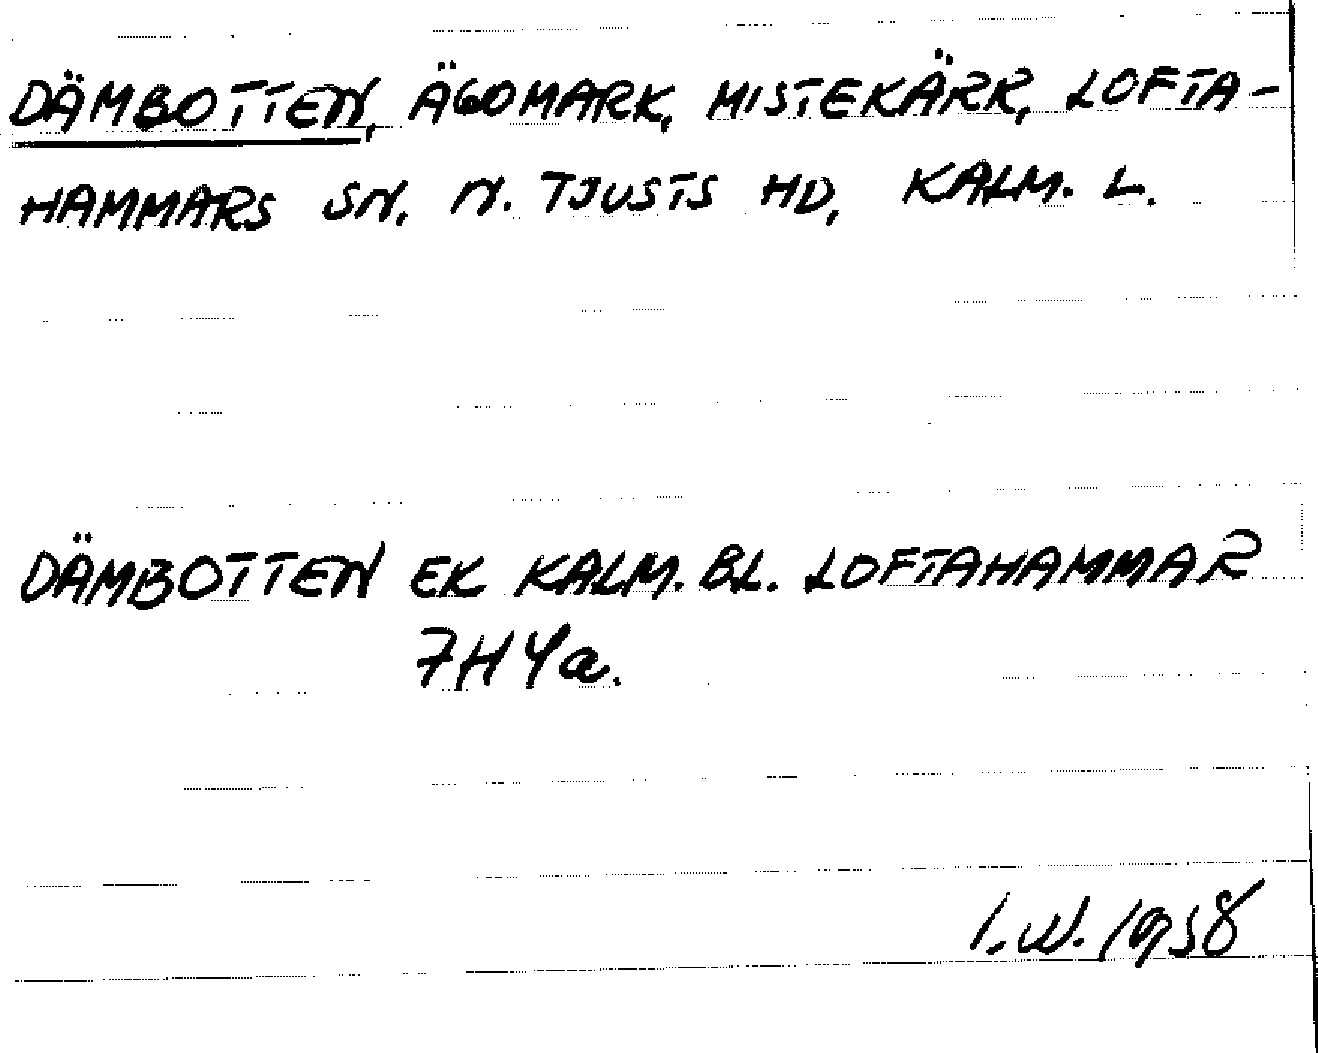 DÄMBOTTEN, ÄGOMARK, MISTEKÄRR, LOFTA-
HAMMARS SN, N. TJUSTS HD, KALM. L.
DÄMBOTTEN EK KALM. BL. LOFTAHAMMAR
7H4a.
I.W. 1958